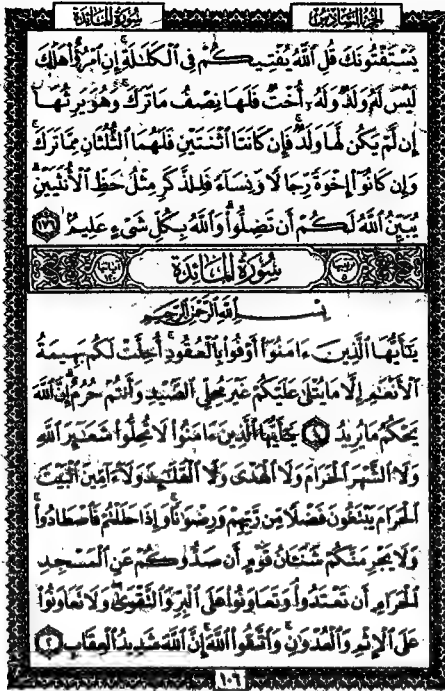 سُورَةُ المَائِدَةِ الجُزْءُ السَّادِسُ
يَسْتَفْتُونَكَ قُلِ ٱللَّهُ يُفْتِيكُمْ فِى ٱلْكَلَٰلَةِ إِنِ ٱمْرُؤٌا۟ هَلَكَ
لَيْسَ لَهُۥ وَلَدٌ وَلَهُۥٓ أُخْتٌ فَلَهَا نِصْفُ مَا تَرَكَ وَهُوَ يَرِثُهَآ
إِن لَّمْ يَكُن لَّهَا وَلَدٌ فَإِن كَانَتَا ٱثْنَتَيْنِ فَلَهُمَا ٱلثُّلُثَانِ مِمَّا تَرَكَ
وَإِن كَانُوٓا۟ إِخْوَةً رِّجَالًا وَنِسَآءً فَلِلذَّكَرِ مِثْلُ حَظِّ ٱلْأُنثَيَيْنِ
يُبَيِّنُ ٱللَّهُ لَكُمْ أَن تَضِلُّوا۟ وَٱللَّهُ بِكُلِّ شَىْءٍ عَلِيمٌۢ ١٧٦
سُورَةُ المَائِدَةِ
بِسْمِ ٱللَّهِ ٱلرَّحْمَٰنِ ٱلرَّحِيمِ
يَٰٓأَيُّهَا ٱلَّذِينَ ءَامَنُوٓا۟ أَوْفُوا۟ بِٱلْعُقُودِ أُحِلَّتْ لَكُم بَهِيمَةُ
ٱلْأَنْعَٰمِ إِلَّا مَا يُتْلَىٰ عَلَيْكُمْ غَيْرَ مُحِلِّى ٱلصَّيْدِ وَأَنتُمْ حُرُمٌ إِنَّ ٱللَّهَ
يَحْكُمُ مَا يُرِيدُ ١ يَٰٓأَيُّهَا ٱلَّذِينَ ءَامَنُوا۟ لَا تُحِلُّوا۟ شَعَٰٓئِرَ ٱللَّهِ
وَلَا ٱلشَّهْرَ ٱلْحَرَامَ وَلَا ٱلْهَدْىَ وَلَا ٱلْقَلَٰٓئِدَ وَلَآ ءَآمِّينَ ٱلْبَيْتَ
ٱلْحَرَامَ يَبْتَغُونَ فَضْلًا مِّن رَّبِّهِمْ وَرِضْوَٰنًا وَإِذَا حَلَلْتُمْ فَٱصْطَادُوا۟
وَلَا يَجْرِمَنَّكُمْ شَنَـَٔانُ قَوْمٍ أَن صَدُّوكُمْ عَنِ ٱلْمَسْجِدِ
ٱلْحَرَامِ أَن تَعْتَدُوا۟ وَتَعَاوَنُوا۟ عَلَى ٱلْبِرِّ وَٱلتَّقْوَىٰ وَلَا تَعَاوَنُوا۟
عَلَى ٱلْإِثْمِ وَٱلْعُدْوَٰنِ وَٱتَّقُوا۟ ٱللَّهَ إِنَّ ٱللَّهَ شَدِيدُ ٱلْعِقَابِ ٢
١٠٦